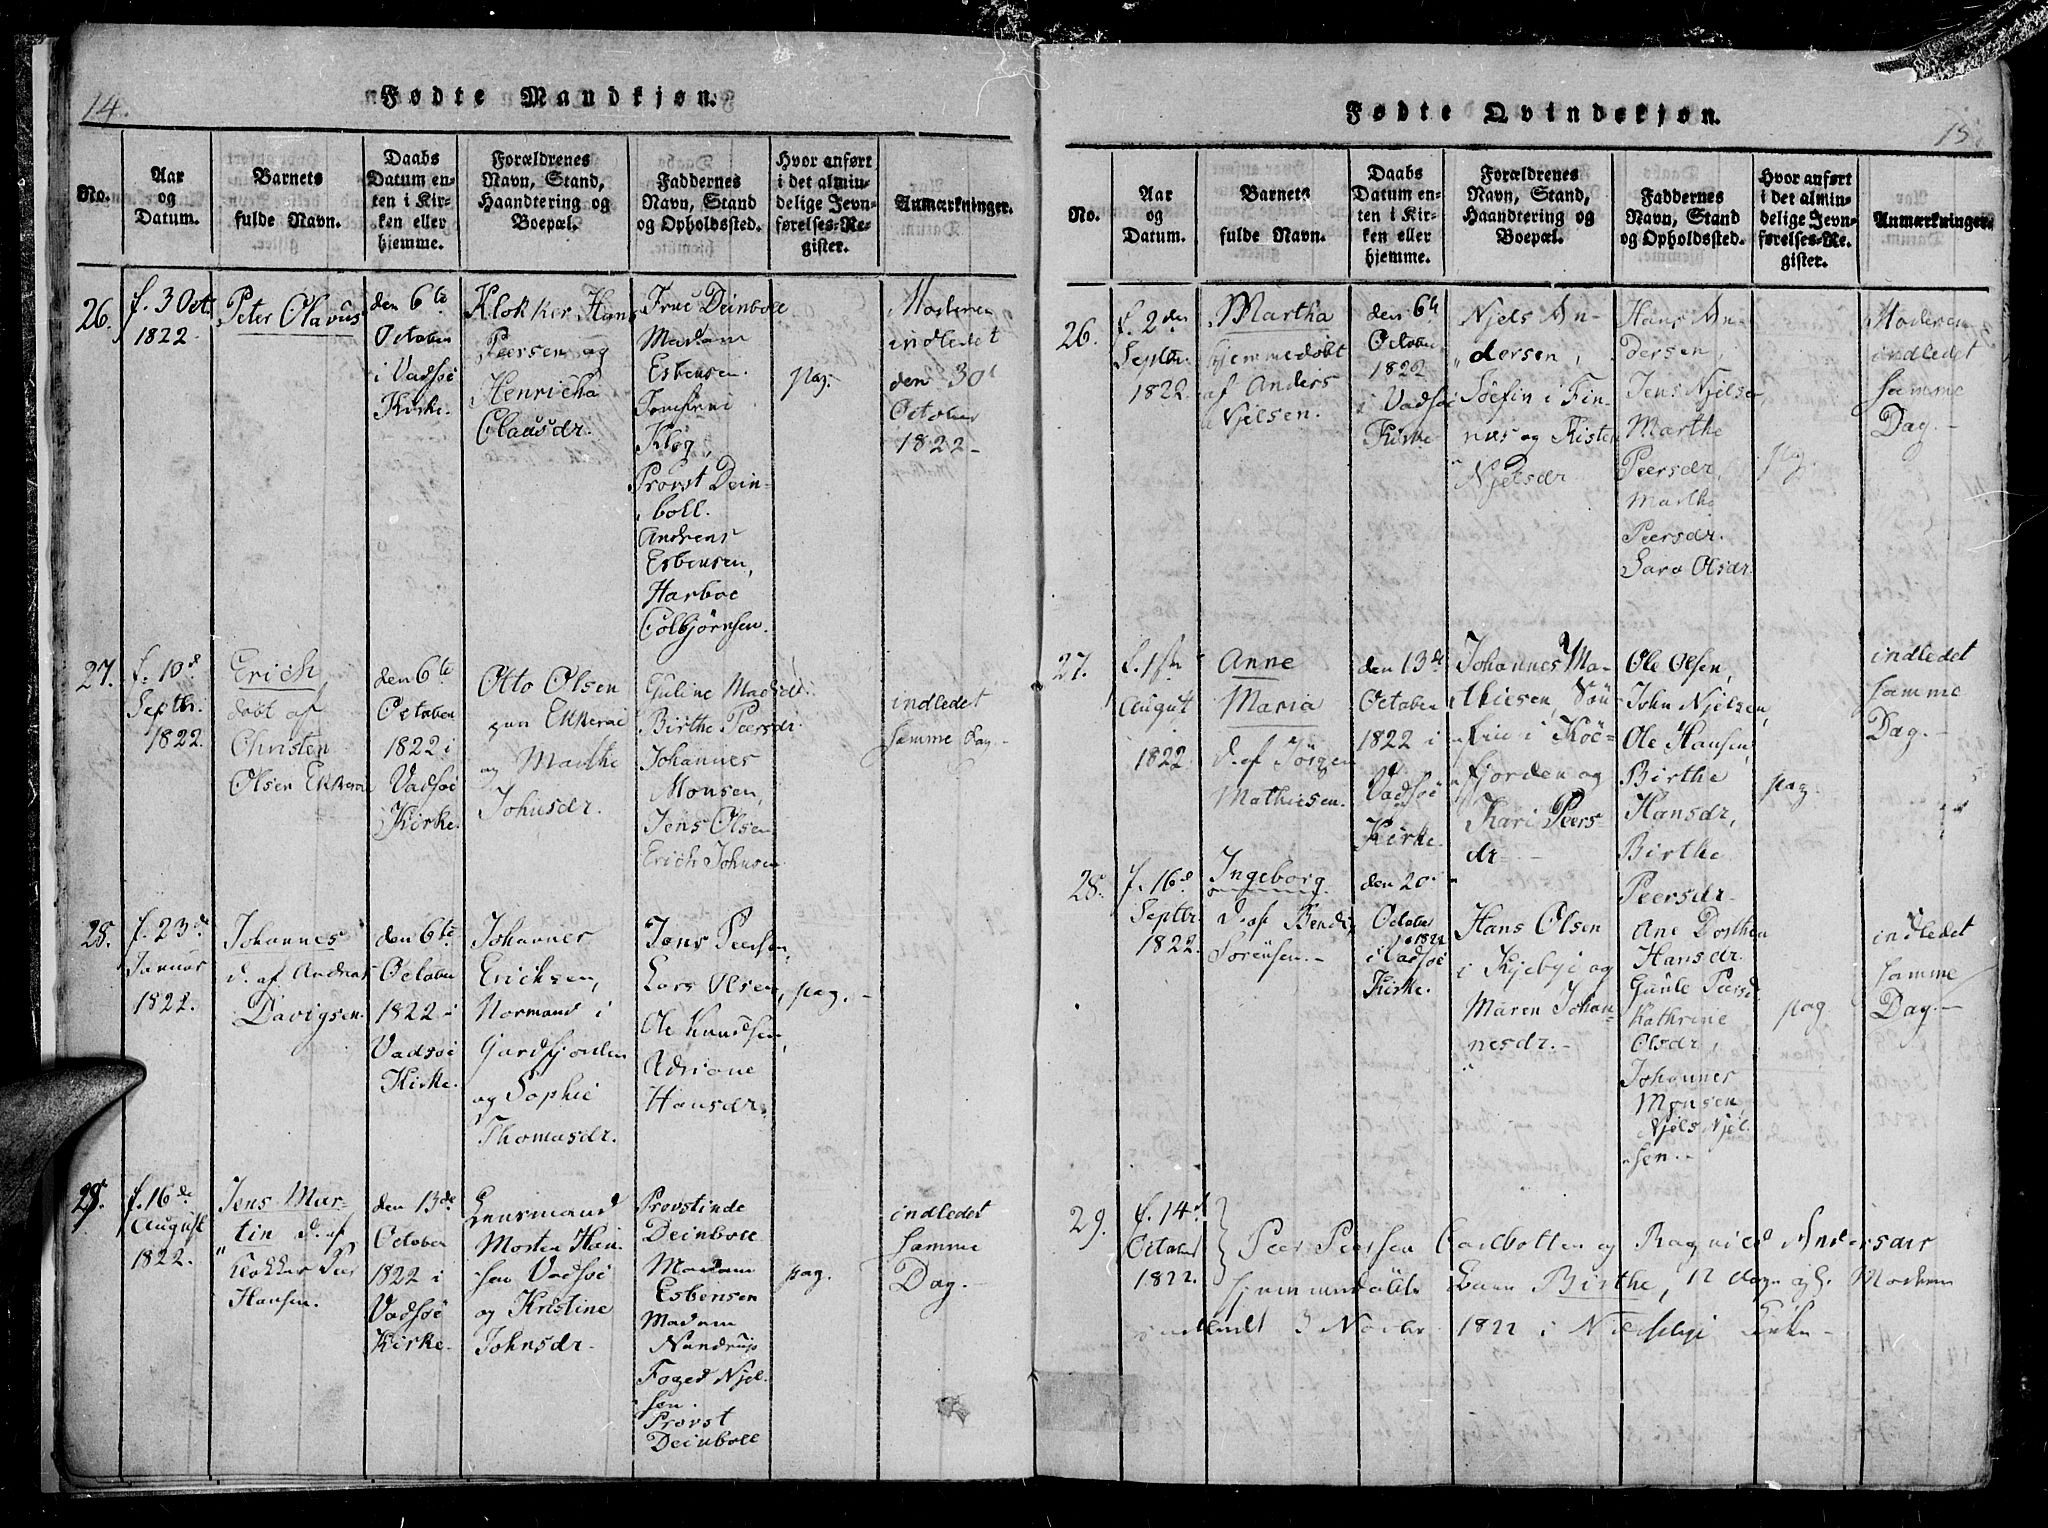 14.
Fødte Mandkjøn.
No.
Aar
og
Datum.
Barnets
fulde Navn.
Daabs
Datum en-
ten i Kir-
ken eller
hjemme.
Forældrenes
Navn, Stand,
Haandtering og
Boepæl.
Faddernes
Navn, Stand
og Opholdssted.
Hvor anført
i det almin-
delige Jevn-
førelses-Re-
gister.
Anmærkninger.
26.
f. 3 Oct.
1822.
Peter Olavus
den 6te
October
i Vadsöe
Kirke.
Klokker Hans
Peersen og
Henricha
Clausdr.
Frue Deinboll
Madam
Esbensen.
Jomfrue
Klog,
Provst Dein-
boll.
Andreas
Esbensen,
Harboe
Colbjörnsen.
pag.
Moderen
indledet
den 30t
October
1822-
27.
f. 10d
Septbr.
1822.
Erich
döbt af
Christen
Olsen Ekkeröe
den 6te
October
1822 i
Vadsöe
Kirke.
Otto Olsen
paa Ekkeröe
og Marthe
Johnsdr.
Guline Madsdr
Birthe Peersdr.
Johannes
Monsen,
Jens Olsen
Erich Johnsen
indledet
samme Dag.-
28.
f. 23d
Januar
1822.
Johannes
d. af Andreas
Davigsen.
den 6te
October
1822 i
Vadsöe
Kirke.
Johannes
Ericksen,
Normand i
Gardfjorden
og Sophie
Thomasdr.
Jens Peersen,
Lars Olsen,
Ole Knudsen,
Adriane
Hansdr.
pag.-
29.
f. 16de
August
1822.
Jens Mar-
tin d. af
Klokker Peer
Hansen.
den 13de
October
1822 i
Vadsöe
Kirke.
Lensmand
Morten Han-
sen Vadsöe
og Kristine
Johnsdr.
Provstinde
Deinboll
Madam
Esbensen
Madam
Nandrup
Foged Njel-
sen.
Provst
Deinboll
pag.
indledet
samme
Dag.-
15.
Fødte Qvindekjøn.
No.
Aar
og
Datum.
Barnets
fulde Navn.
Daabs
Datum en-
ten i Kir-
ken eller
hjemme.
Forældrenes
Navn, Stand,
Haandtering og
Boepæl.
Faddernes
Navn, Stand
og Opholdssted.
Hvor anført
i det almin-
delige Jevn-
førelses-Re-
gister.
Anmærkninger.
26.
f. 2den
Septbr.
1822.
Martha
hjemmedöbt
af Anders
Njelsen.
den 6te
October
1822
i Vadsöe
Kirke
Njels An-
dersen,
Söefin i Fin-
næs og Kisten
Njelsdr
Hans An-
dersen,
Jens Njelsen
Marthe
Peersdr,
Marthe
Peersdr.
Sara Olsdr.
pag.
Moderen
indledet
samme
Dag.-
27.
f. 1ste
August
1822.
Anne
Maria
d. af Jörgen
Mathiesen.
den 13de
October
1822 i
Vadsöe
Kirke.
Johannes Ma-
thiesen, Söe-
fin i Köe-
fjorden og
Kari Peers-
dr-
Ole Olsen,
John Njelsen,
Ole Hansen,
Birthe
Hansdr,
Birthe
Peersdr.
pag.
indledet
samme
Dag.-
28.
f. 16d
Septbr.
1822.
Ingeborg
d. af Bendix
Sörensen.-
den 20
October
1822
i Vadsöe
Kirke.
Hans Olsen
i Kjebye og
Maren Johan-
nesdr.-
Ane Dorthea
Hansdr.
Gunle Peersd.
Kathrine
Olsdr,
Johannes
Monsen,
Njels Njel-
sen.-
pag
indledet
samme
Dag.-
29.
f. 14d
October
1822.
Peer Peersen Carlbotten og Ragnild Andersdr
hjemmedöbt Barn Birthe, 12 Dage gl. Moderen
indledt 3 Novbr 1822 i Næsseby Kirke-